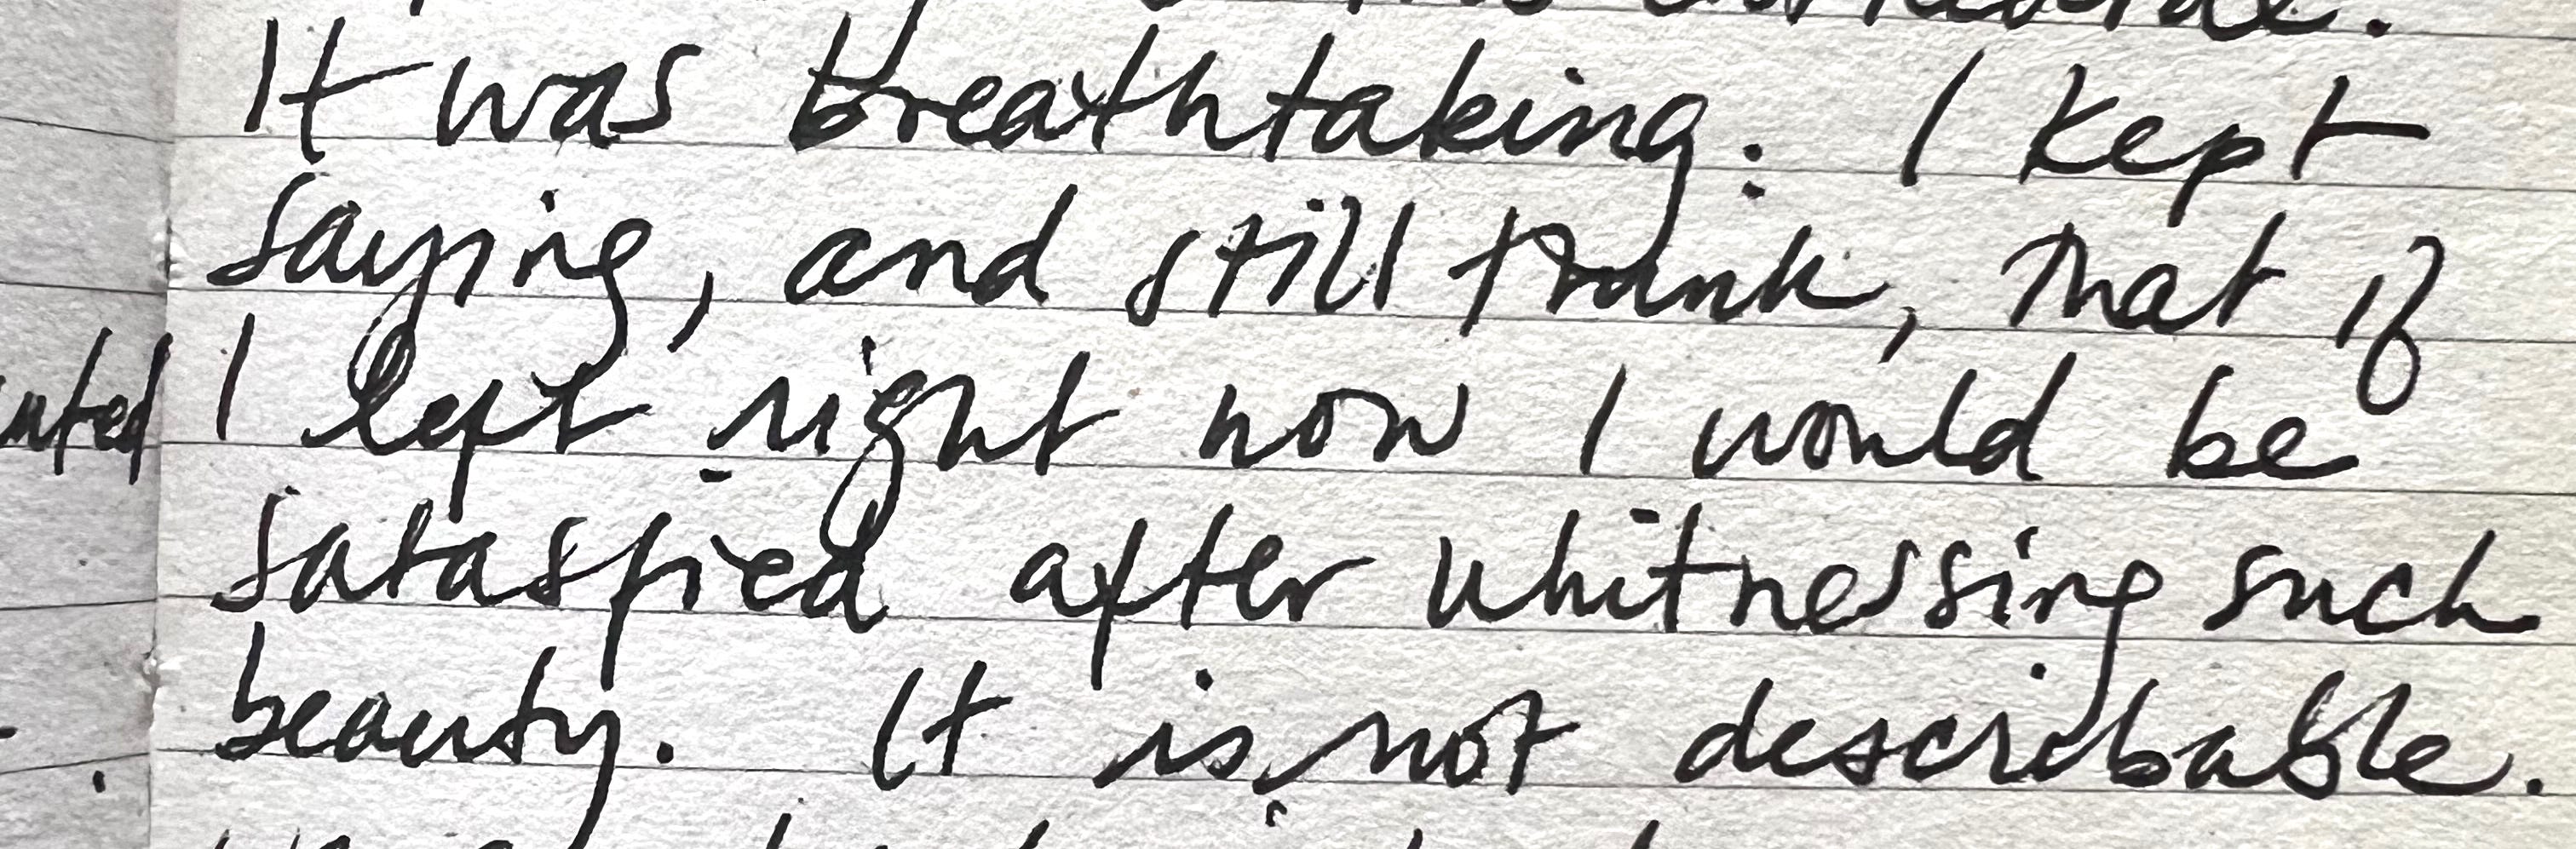 It was breathtaking. I kept
saying, and still think, that if
I left right now I would be
satasfied after whitnessing such
beauty. It is not describable.